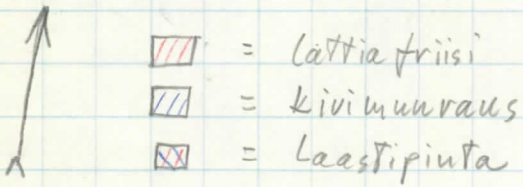 = Lattia friisi
= kivimuuraus
= Laastipinta